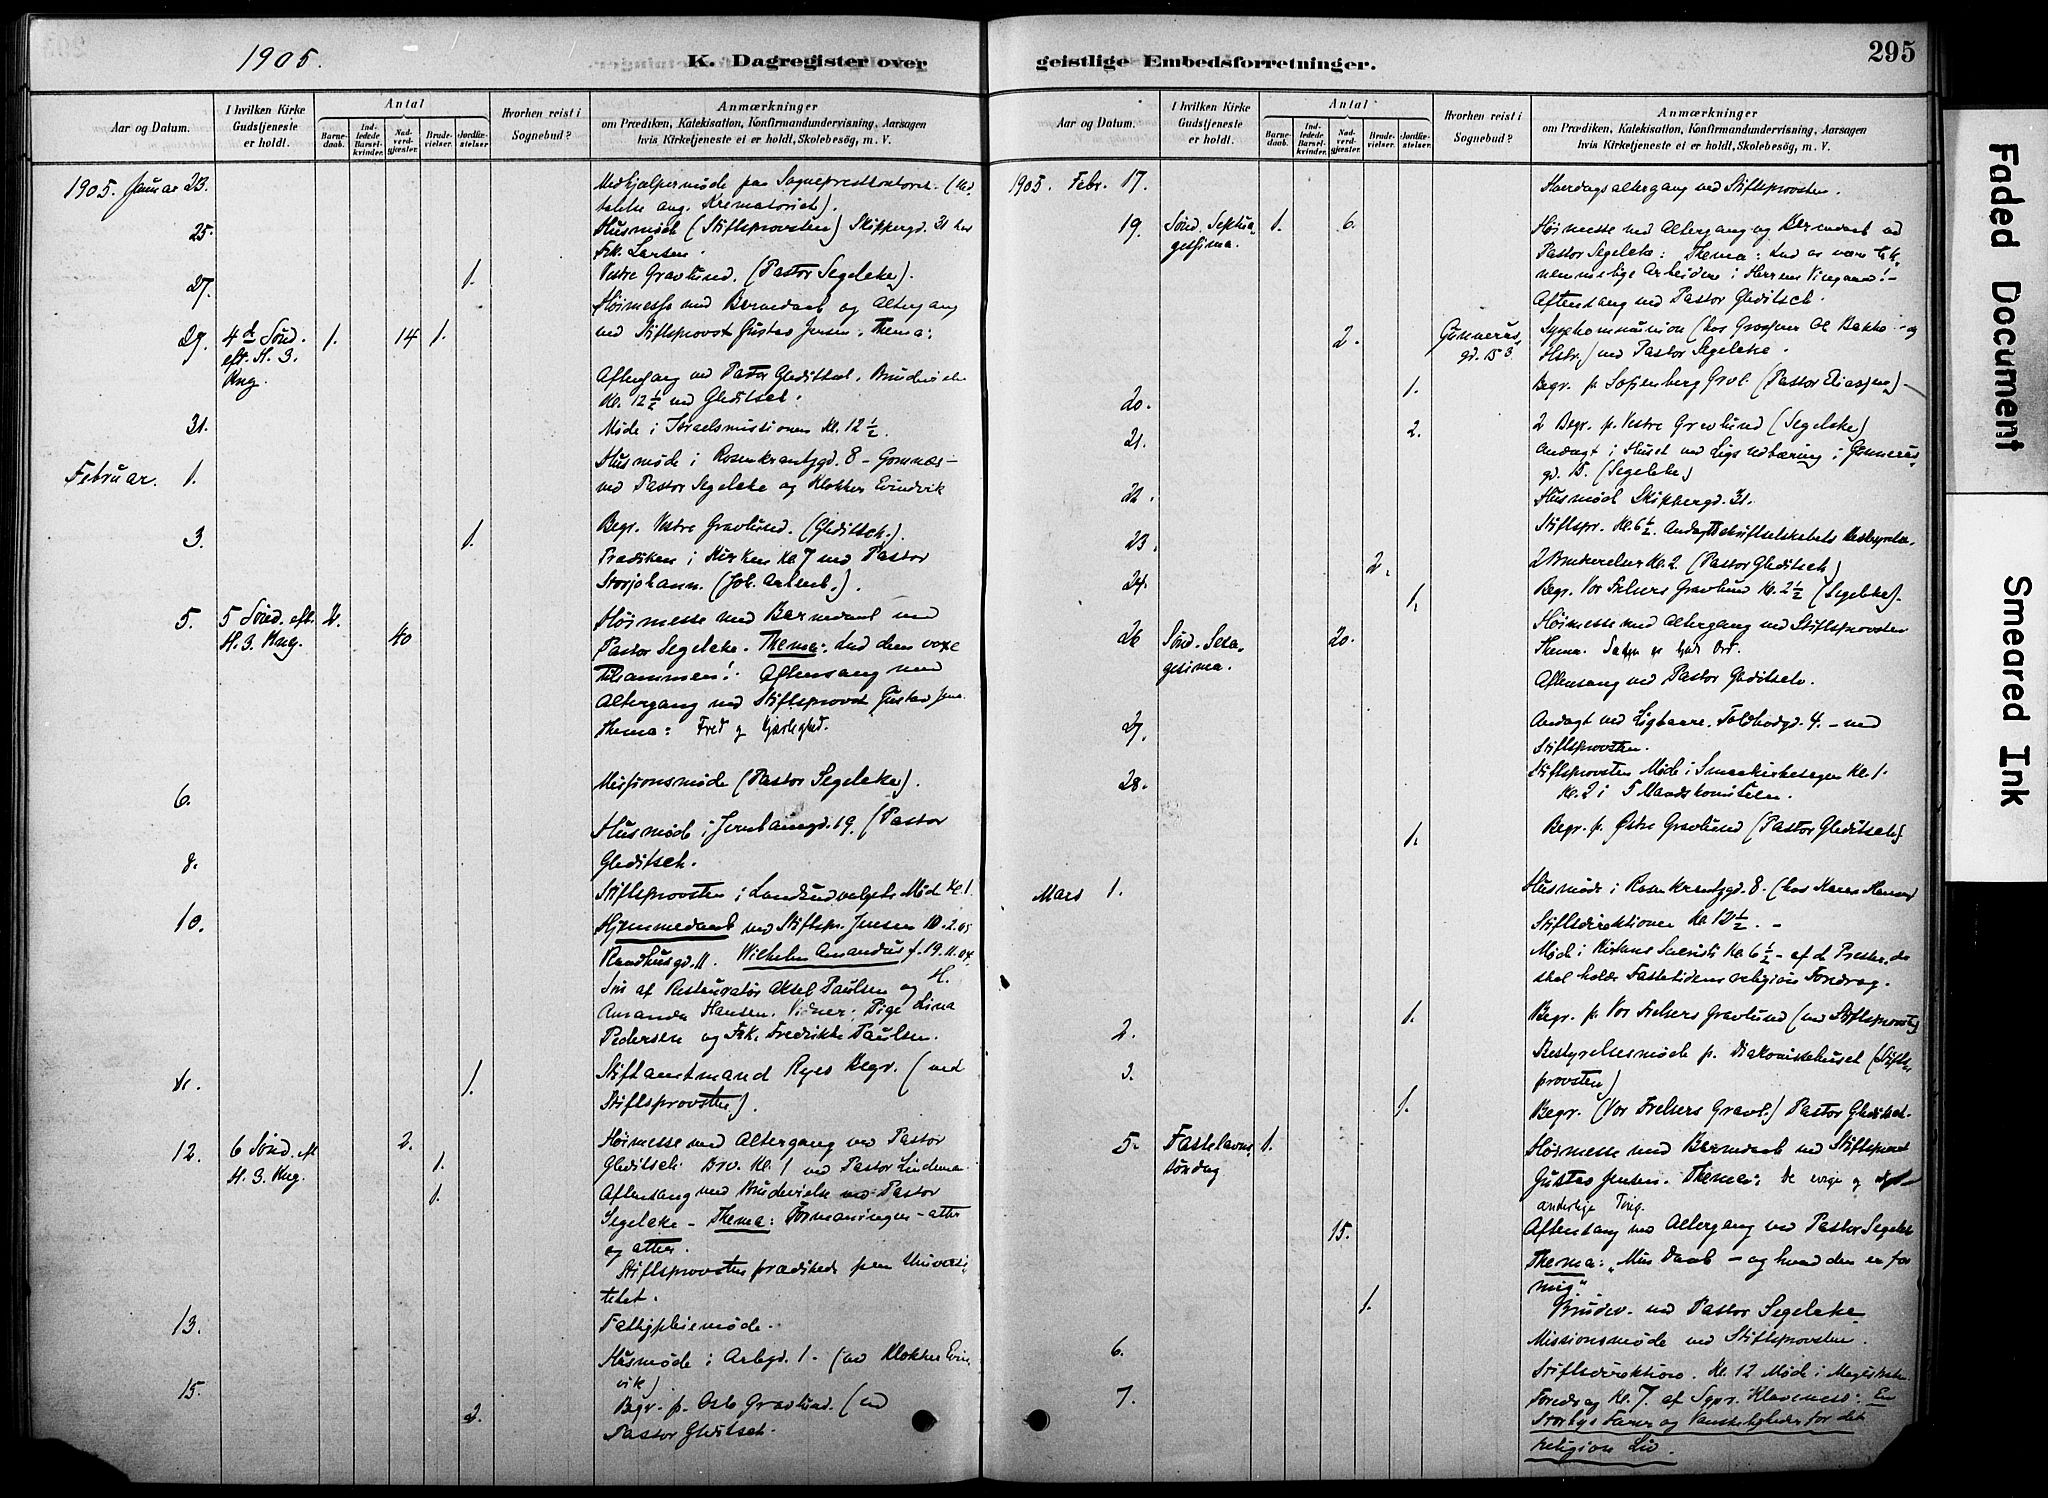 1905.
K. Dagregister over
geistlige Embedsforretninger.
295
Aar og Datum.
I hvilken Kirke Gudstjeneste er holdt.
Antal
Barnedaab.
Indledede Barselkvinder.
Nadverdgjæster.
Brudevielser.
Jordfæstelser
Hvorhen reist i Sognebud?
Anmærkninger
om Prædiken, Katekisation, Konfirmandundervisning, Aarsagen
hvis Kirketjeneste ei er holdt, Skolebesøg, m. V.
1905. Januar 23.
Medhjælpermøde paa Sogneprestkontoret.
ang. Krematoriet).
25.
Husmøde (Stiftsprovsten) Skippergd. 31 hos
Frk. Larsen.
27.
1.
Vestre Gravlund. (Pastor Segelcke).
Høimesse med Barnedaab og Altergang
29. 4de Sønd. 1. 14 1.
ved Stiftsprovst Gustav Jensen. Thema:
eft. H. 3.
Kng.
Aftensang ved Pastor Gleditsch. Brudevielse
Kl. 12½ ved Gleditsch.
31.
Møde i Israelsmissionen Kl. 12½.
Februar. 1.
Husmøde i Rosenkrantzgd. 8 - Gomnæs -
ved Pastor Segelcke og Klokker Evindvik
3.
1.
Begr. Vestre Gravlund. (Gleditsch.).
Prædiken i Kirken Kl. 7 ved Pastor
Storjohann.
5. 5 Sønd. eft. 2.
H. 3 Kng. 40
Høimesse med Barnedaab ved
Pastor Segelcke. Thema: Lad dem voxe
tilsammen! Aftensang med
Altergang ved Stiftsprovst Gustav Jens.
Thema: Fred og Kjærlighed.
6.
Missionsmøde (Pastor Segelcke).
8.
Husmøde i Jernbanegd. 19. (Pastor
Gleditsch.
10.
Stiftsprovsten i Landsudvalgets Møde Kl. 1
Hjemmedaab ved Stiftspr. Jensen 10.2.05
Raadhusgd. 11. Wilhelm Amandus f. 19.11.04.
Søn af Restauratør Aksel Paulsen og H.
Amanda Hansen. Vidner: Pige Lina
Pedersen og Frk. Fredrikke Paulsen.
11.
1.
Stiftamtmand Ryes Begr. (ved
Stiftsprovsten).
12. 6 Sønd. eft 2.
H. 3 Kng.
Høimesse med Altergang ved Pastor
1.
Gleditsch. Brv. Kl. 1 ved Pastor Lindeman
1.
Aftensang med Brudevielse ved Pastor
Segelcke - Thema: Formaningen - atter
og atter.
Stiftsprovsten prædikede paa Universi-
tetet.
13.
Fattigpleiemøde.
Husmøde i Arbgd. 1. - (ved Klokker Evin-
vik)
15.
2.
Begr. p. Oslo Gravlund. (ved
Pastor Gleditsch.
Aar og Datum.
I hvilken Kirke Gudstjeneste er holdt.
Antal
Barnedaab.
Indledede Barselkvinder.
Nadverdgjæster.
Brudevielser.
Jordfæstelser
Hvorhen reist i Sognebud?
Anmærkninger
om Prædiken, Katekisation, Konfirmandundervisning, Aarsagen
hvis Kirketjeneste ei er holdt, Skolebesøg, m. V.
1905. Febr. 17.
Hverdagsaltergang ved Stiftsprovsten.
19. Sønd. Septua- 1. 6.
gesima.
Høimesse med Altergang og Barnedaab ved
Pastor Segelcke: Thema: Lad os være
Arbeidere i Herrens Vingaard! -
Aftensang ved Pastor Gleditsch.
2. Gunnerus-
gd. 15
Sygekommunion (hos Grosserer Ol. Bakke - og
Hstr.) ved Pastor Segelcke.
20.
1.
Begr. p. Sofienberg Grvl. (Pastor Eliassen) -
21.
2.
2 Begr. p. Vestre Gravlund (Segelcke)
Andagt i Huset ved Ligs Udbæring i Gunnerus-
gd. 15. (Segelcke)
22.
Husmøde Skippergd. 31.
23.
Stiftspr. Kl. 6½. Andagtsskriftselskabets Bestyrelse.
24.
2.
2 Brudevielser Kl. 2. (Pastor Gleditsch)
1.
Begr. Vor Frelsers Gravlund Kl. 2½ (Segelcke).
26 Sønd. Sexa- 20.
gesima.
Høimesse med Altergang ved Stiftsprovsten
Thema. Sæden er Guds Ord.
Aftensang ved Pastor Gleditsch.
27.
Andagt ved Ligbaare. Toldbodgd. 4. - ved
Stiftsprovsten.
28.
Stiftsprovsten Møde i Smaakirkesagen Kl. 1.
Kl. 2 i 5 Mandskomiteen.
1.
Begr. p. Østre Gravlund (Pastor Gleditsch).
Mars 1.
Husmøde i Rosenkrantzgd. 8. (hos Karen Hansen)
Stiftsdirektionen Kl. 12½. -
Møde i Kirkens Sakristi Kl. 6½ - af d. Prester, der
skal holde Fastetidens religiøse Foredrag.
2.
1.
Begr. p. Vor Frelsers Gravlund (ved Stiftsprovsten)
3.
Bestyrelsesmøde p. Diakonissehuset (Stifts-
provsten)
1.
Begr. (Vor Frelsers Gravl.) Pastor Gleditsch.
5. Fastelavns- 1.
søndag
Høimesse med Barnedaab ved Stiftsprovst
Gustav Jensen. Thema: De evige og
aandelige Ting.
15.
Aftensang med Altergang ved Pastor Segelcke
Thema: "Min Daab - og hvad den er for
mig".
1.
Brudev. ved Pastor Segelcke
6.
Missionsmøde ved Stiftsprovsten.
7.
Stiftsdirektion. Kl. 12 Møde i Magistraten
Foredrag Kl. 7. af Sgpr. Klaveness: En
Storbys Farer og Vanskeligheder for det
religiøse Liv.
Faded Document
Smeared Ink